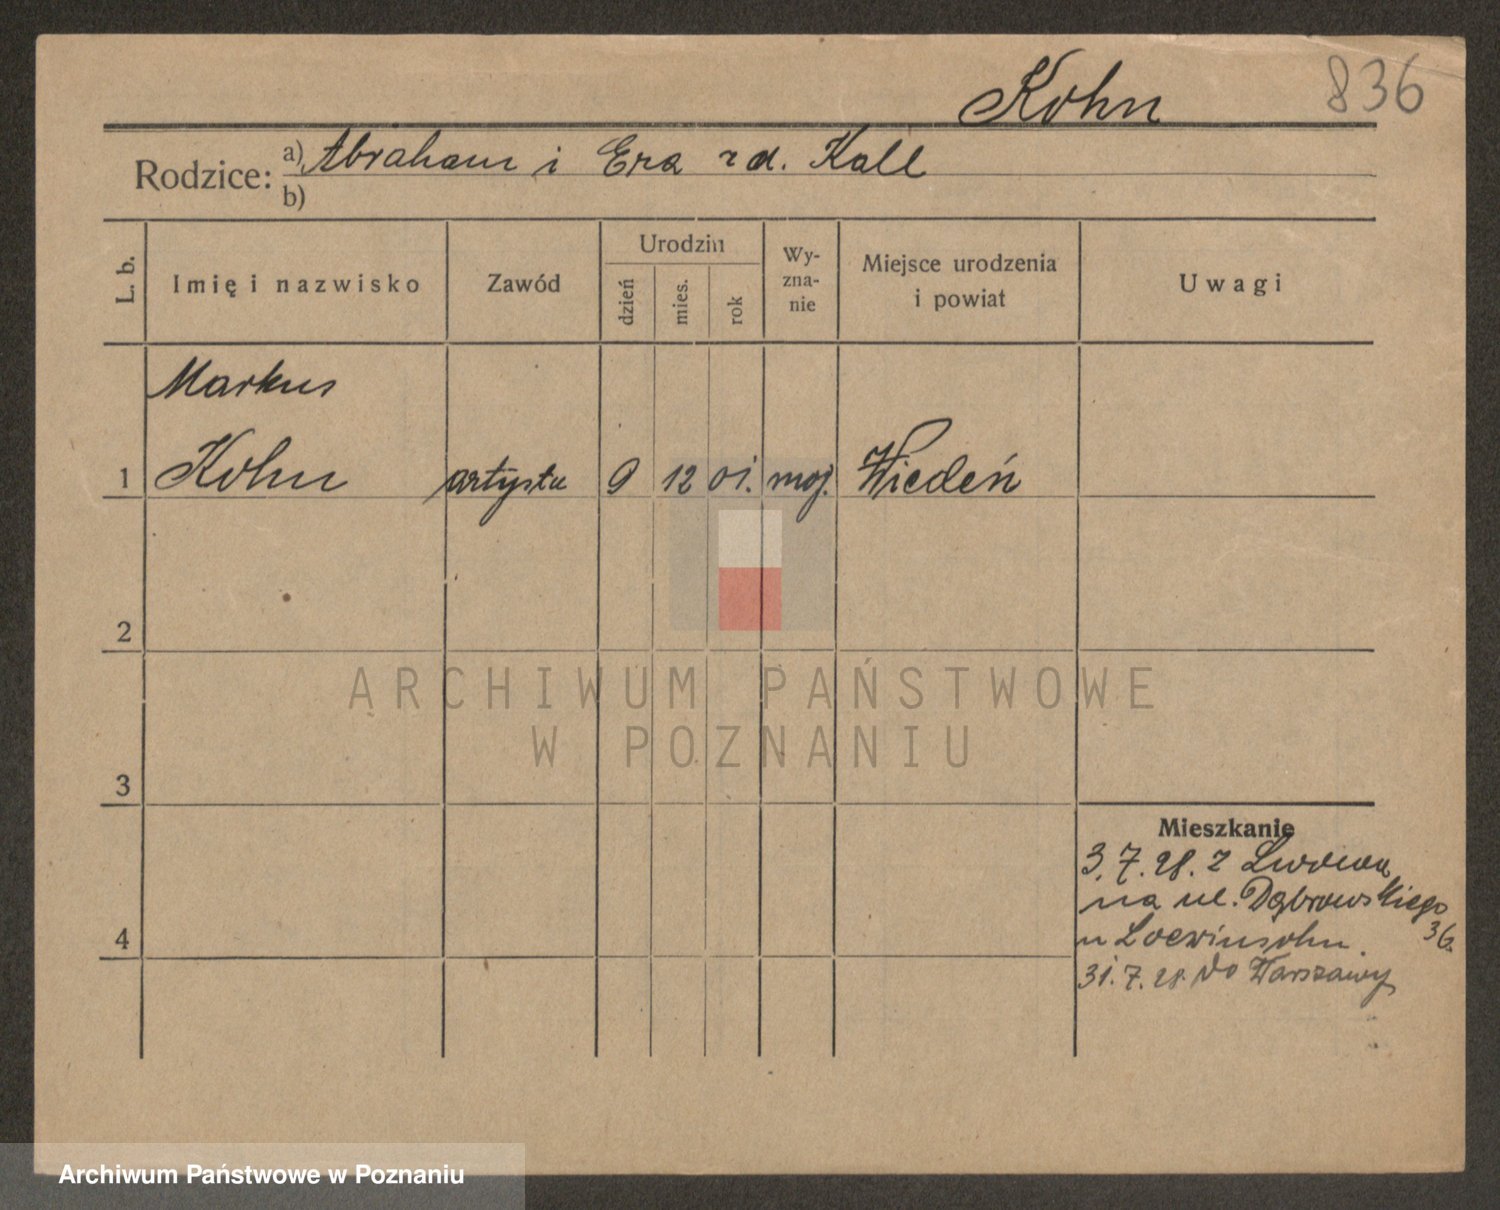 Kohn 836
Rodzice: a) Abraham i Era rd. Kall
b)
L. b.
Imię i nazwisko
Zawód
Urodzin
dzień
mies.
rok
Wy-
zna-
nie
Miejsce urodzenia
i powiat
Uwagi
Markus
1 Kohn artysta 9 12 01. moj. Wiedeń
2
ARCHIWUM PAŃSTWOWE
W POZNANIU
3
Mieszkanie
3.7.28. z Lwowa
na ul. Dąbrowskiego
36.
4
u Loewinsohn.
31.7.28. do Warszawy
Archiwum Państwowe w Poznaniu